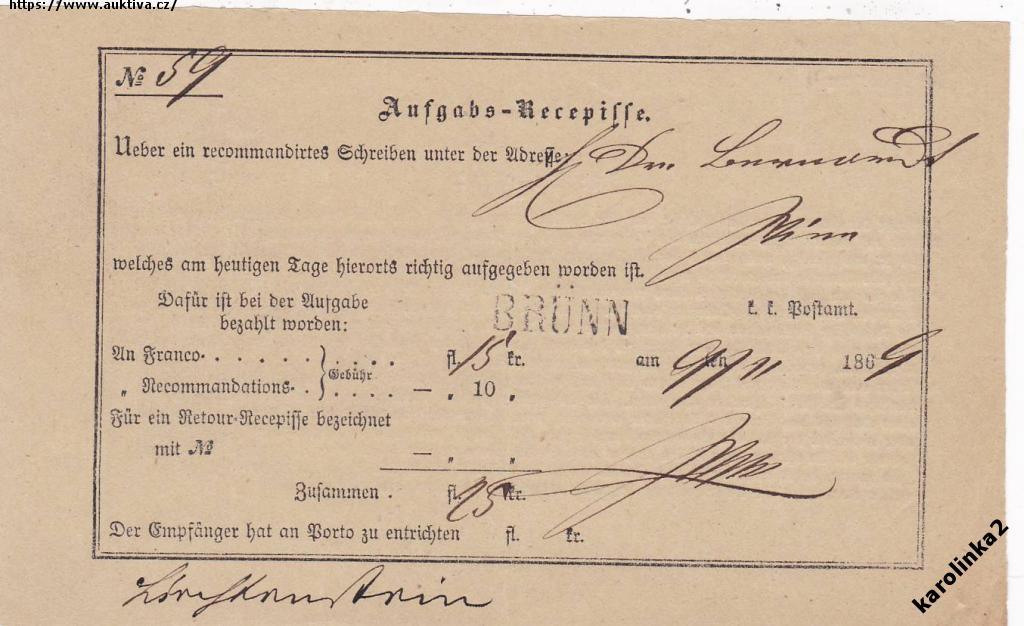 https://www.auktiva.cz/
№ 59
Aufgabs-Recepisse.
Ueber ein recommandirtes Schreiben unter der Adresse:
Wien
welches am heutigen Tage hierorts richtig aufgegeben worden ist.
Dafür ist bei der Aufgabe
bezahlt worden:
BRÜNN
k. k. Postamt.
An Franco . . . . . . . . . . fl. 15 kr.
am 9ten 11 1869
„ Recommandations . . Gebühr . . . . — „ 10 „
Für ein Retour-Recepisse bezeichnet
mit № — „ „
Zusammen . fl. 25 kr.
Der Empfänger hat an Porto zu entrichten fl. kr.
karolinka2